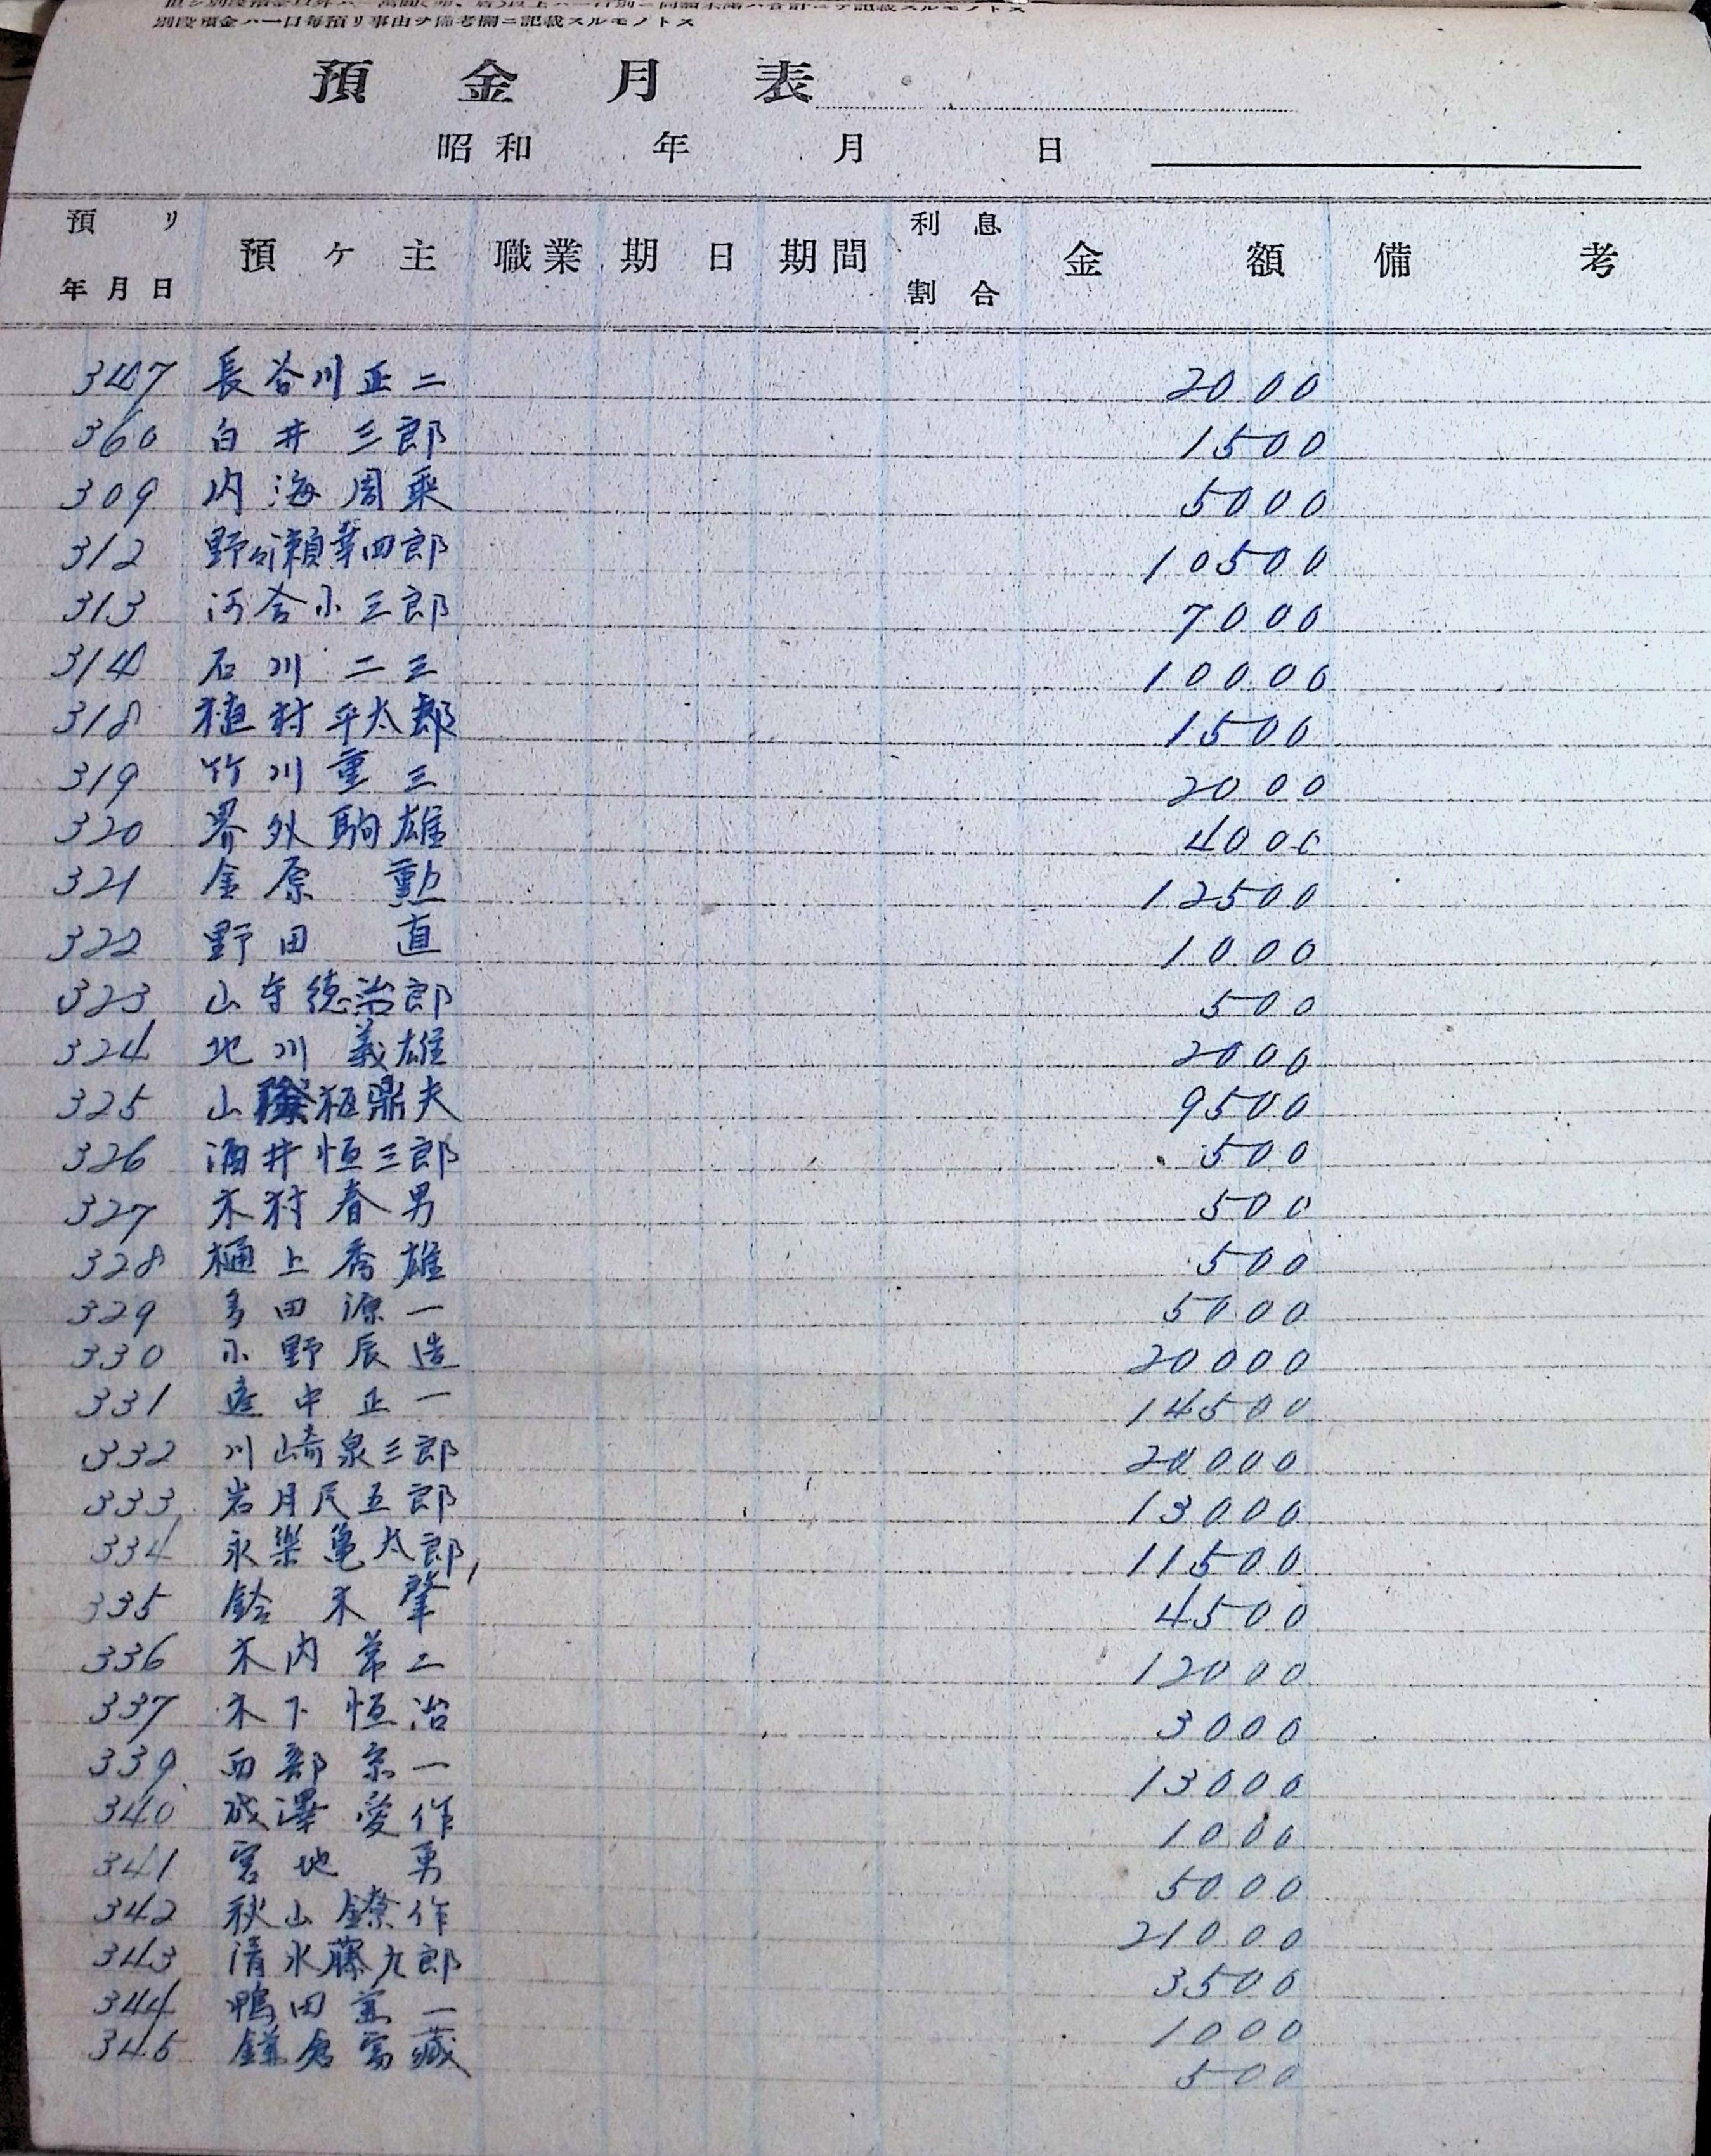 別段預金ハ一口毎預リ事由ヲ備考欄ニ記載スルモノトス
預金月表
昭和 年 月 日
預リ年月日 預ケ主 職業 期日 期間 利息割合 金額 備考
347 長谷川正二 2000
360 白井三郎 1500
309 内海周乗 5000
312 野々瀬幸四郎 10500
313 河合小三郎 7000
314 石川二三 10000
318 植村平太郎 1500
319 竹川重三 2000
320 界外駒雄 4000
321 金原勲 12500
322 野田直 1000
323 山寺徳治郎 500
324 北川義雄 2000
325 山 板鼎夫 9500
326 酒井恒三郎 500
327 木村春男 500
328 樋上秀雄 500
329 多田源一 5000
330 小野辰造 20000
331 遠中正一 14500
332 川崎泉三郎 20000
333 岩月辰五郎 13000
334 永楽亀太郎 11500
335 鈴木肇 4500
336 木内常二 12000
337 木下恒治 3000
339 西部京一 13000
340 成澤愛作 1000
341 宮地勇 5000
342 秋山鐐作 21000
343 清水藤九郎 3500
344 鴨田 一 1000
345 鎌倉富蔵 500